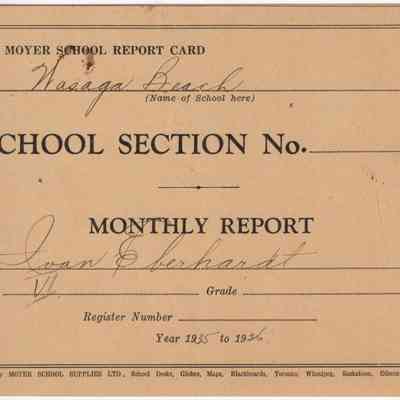 MOYER SCHOOL REPORT CARD
Wasaga Beach
(Name of School here)
CHOOL SECTION No.
MONTHLY REPORT
Ivan Eberhardt
VI Grade
Register Number
Year 1935 to 1936
y MOYER SCHOOL SUPPLIES LTD., School Desks, Globes, Maps, Blackboards, Toronto, Winnipeg, Saskatoon, Edmon